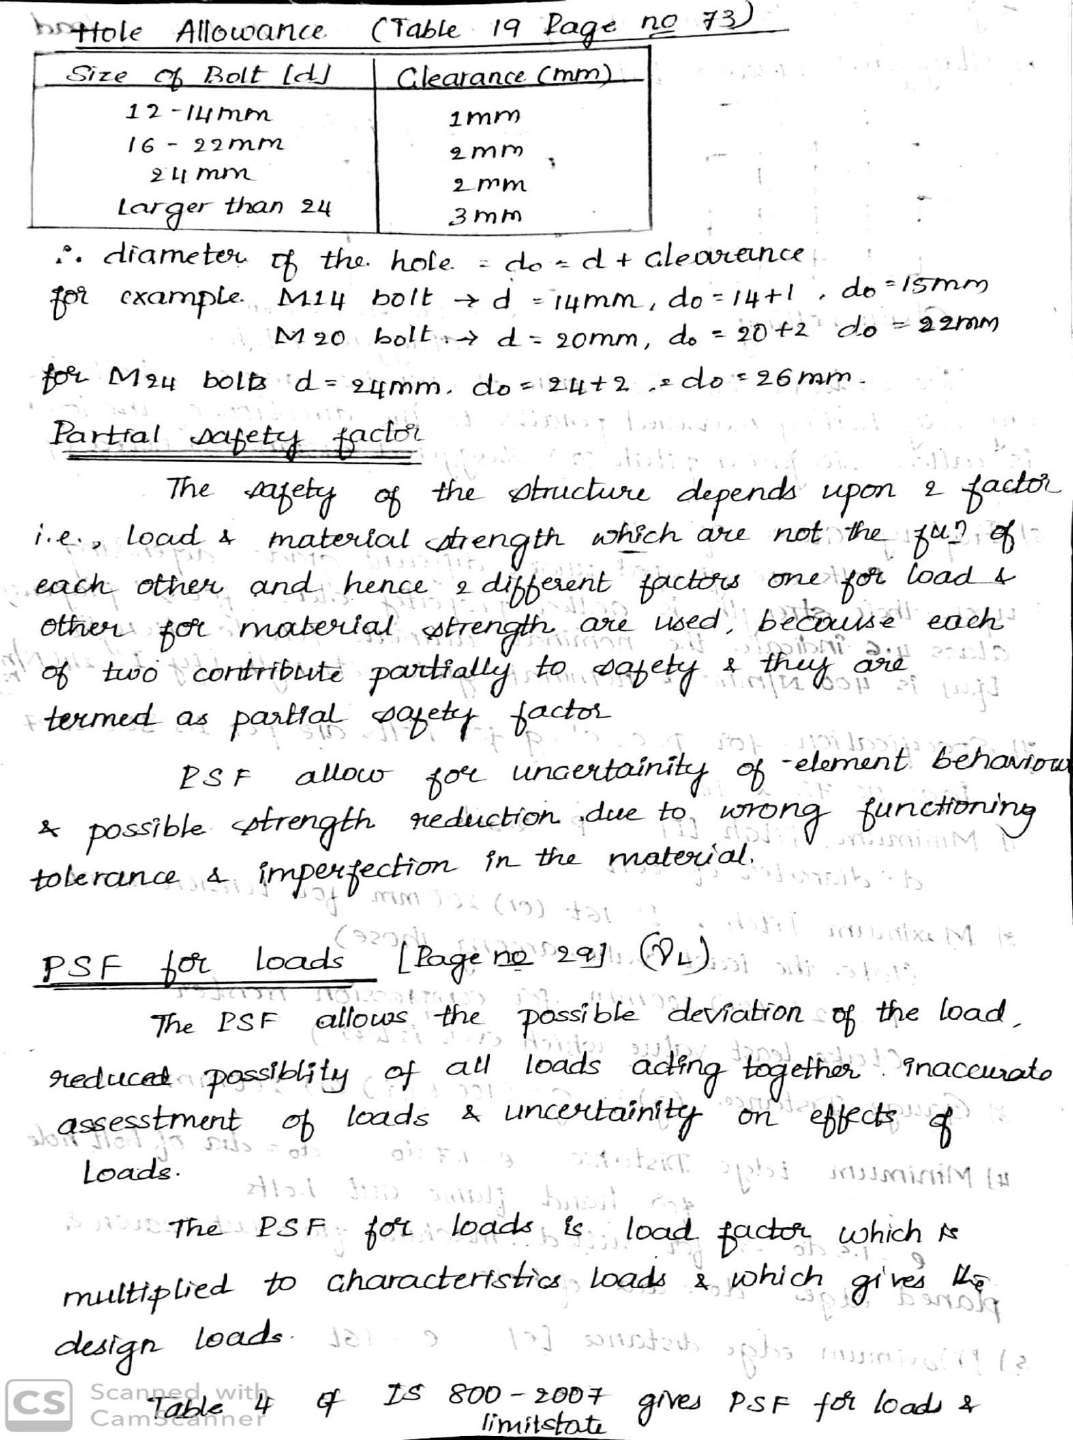 Hole Allowance (Table 19 Page no 73)
Size of Bolt [d] Clearance (mm)
12-14mm 1mm
16 - 22mm 2mm
24 mm 2mm
Larger than 24 3mm
∴ diameter of the hole = do = d + clearence
for example M14 bolt → d = 14mm, do = 14+1, do = 15mm
M20 bolt → d = 20mm, do = 20+2 do = 22mm
for M24 bolts d = 24mm. do = 24+2 , do = 26mm.
Partial safety factor
The safety of the structure depends upon 2 factor
i.e., load & material strength which are not the fun of
each other and hence 2 different factors one for load &
other for material strength are used, because each
of two contribute partially to safety & they are
termed as partial safety factor
PSF allow for uncertainity of element behaviour
& possible strength reduction due to wrong functioning
tolerance & imperfection in the material.
PSF for loads [Page no 29] (γL)
The PSF allows the possible deviation of the load,
reduced possiblity of all loads acting together. inaccurate
assesstment of loads & uncertainity on effects of
Loads.
The PSF for loads is load factor which is
multiplied to characteristics loads & which gives the
design loads.
Table 4 of IS 800-2007 gives PSF for loads &
limitstate
CS Scanned with
CamScanner